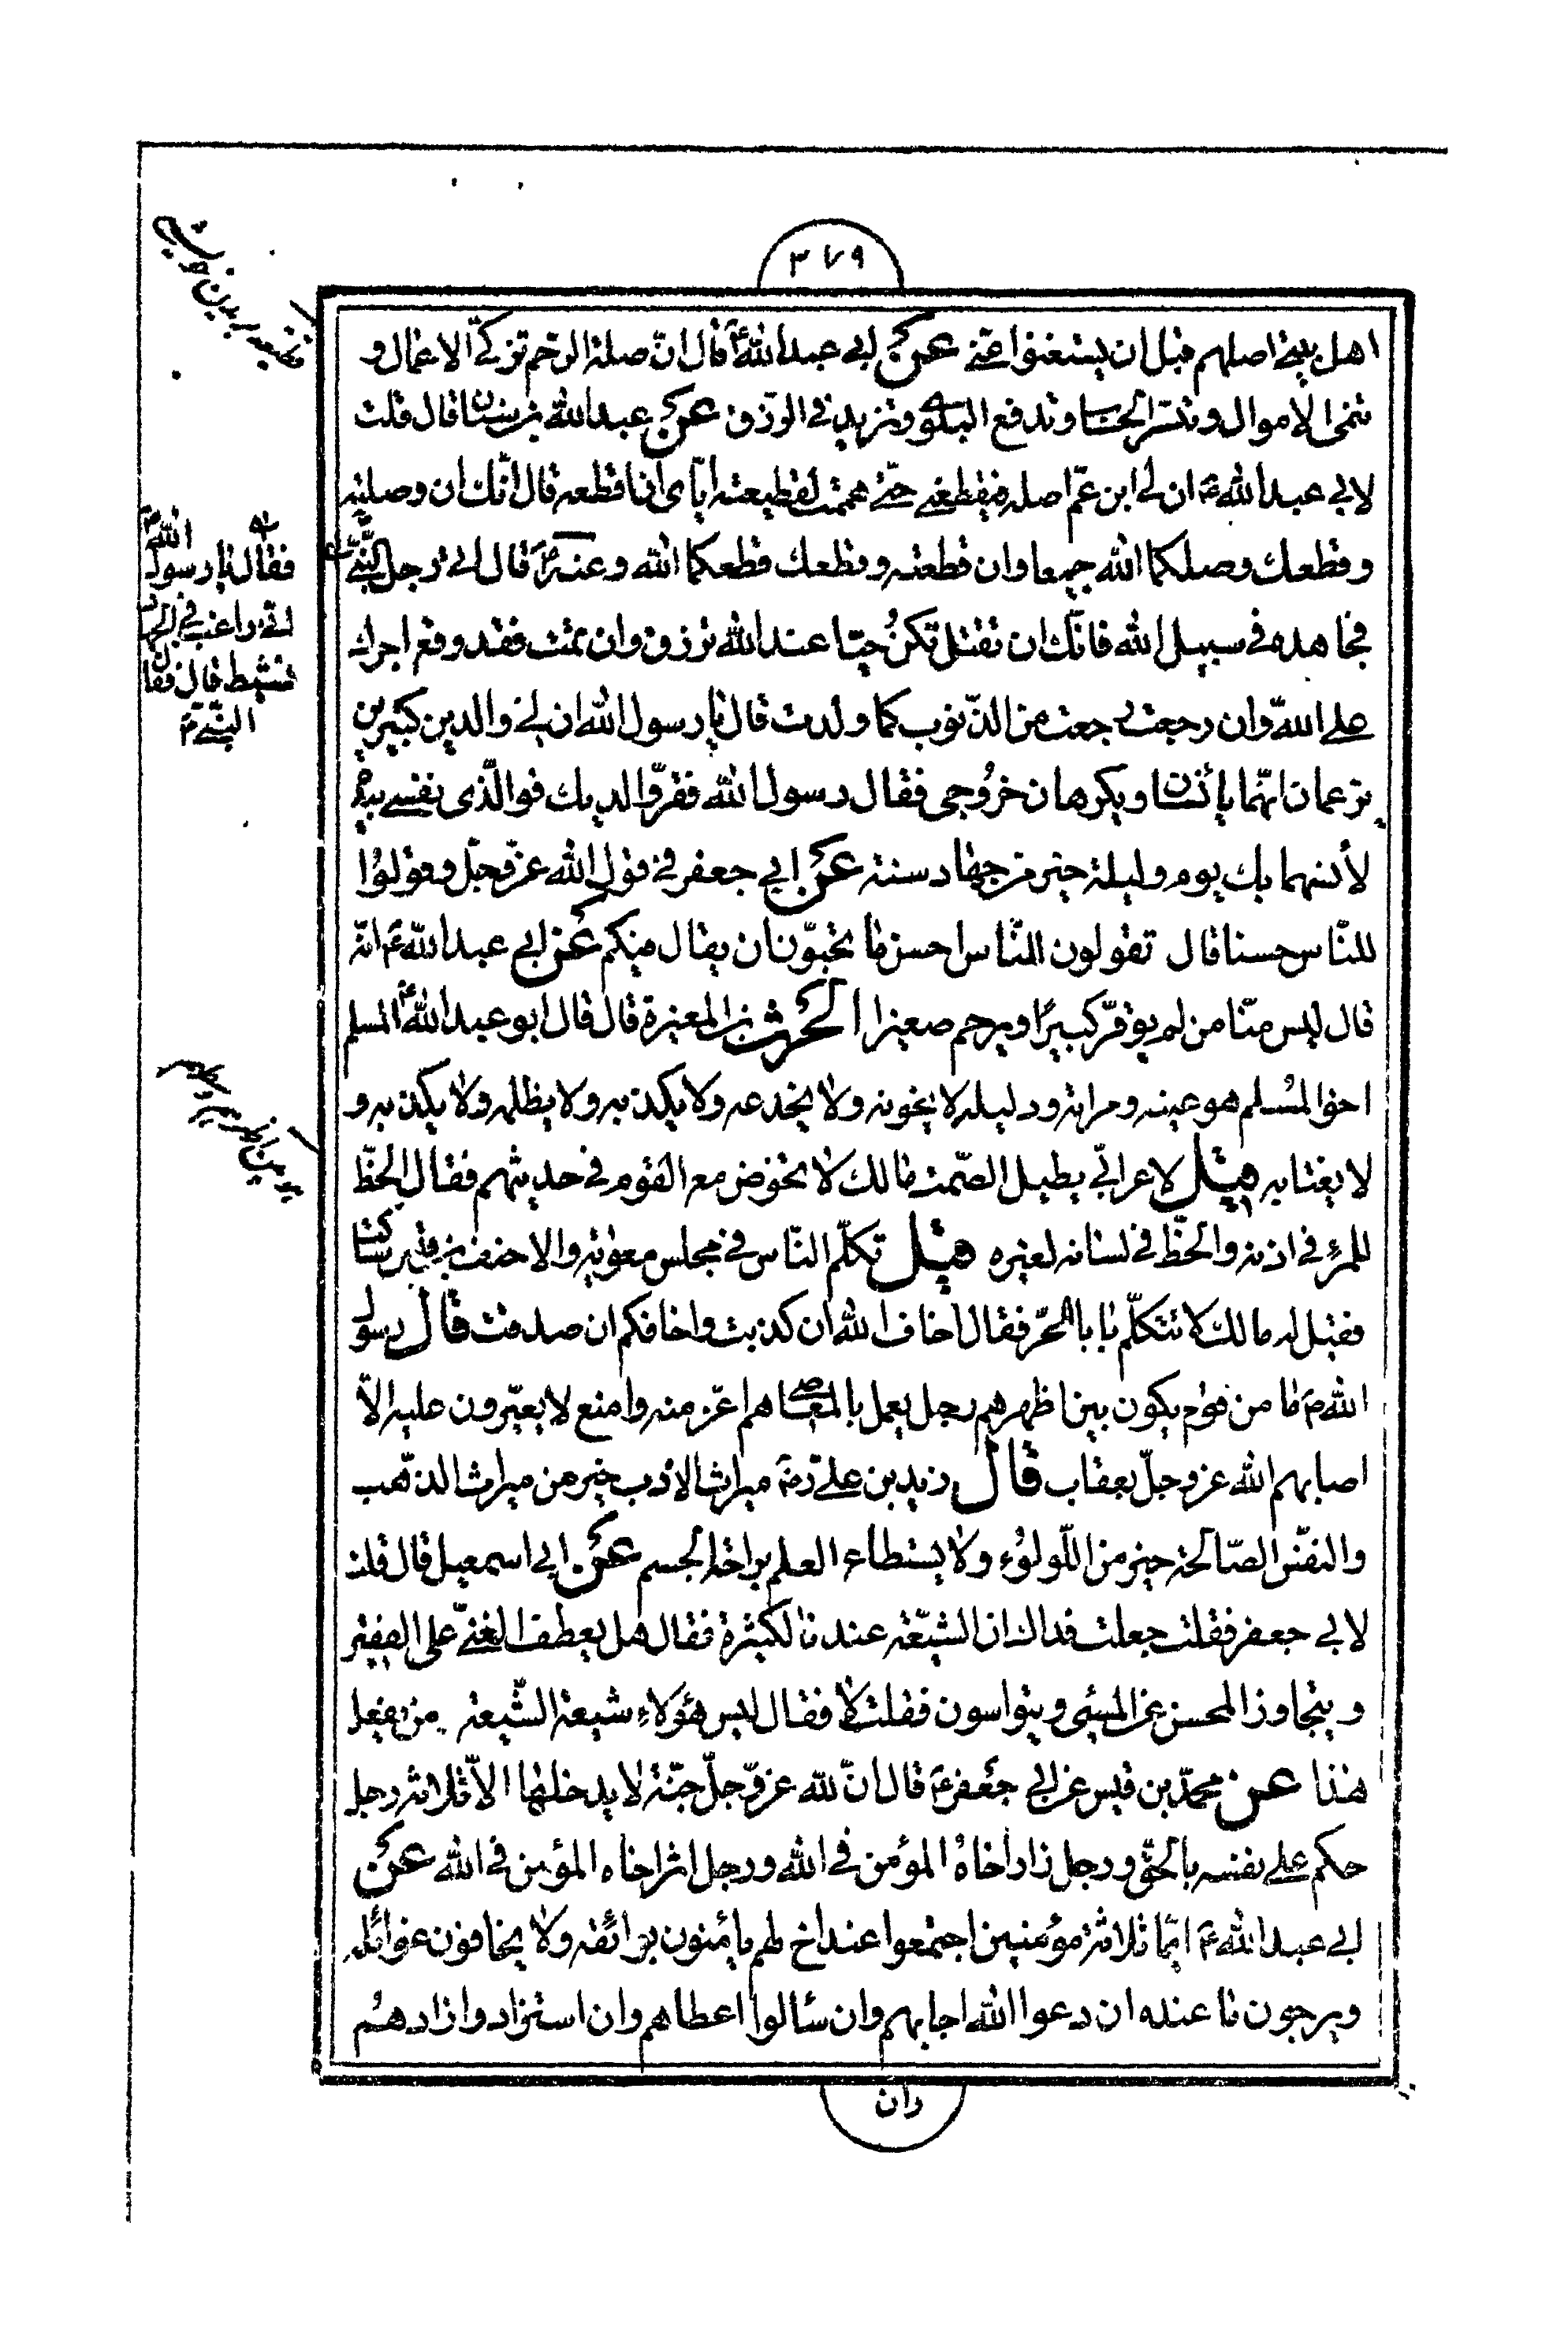 ٣٧٩
اهل بيتى اصلهم قبل ان يستغنوا عنّى عن ابى عبد الله ع قال انّ صلة الرّحم تزكّى الاعمال و
تنمى الاموال و تيسّر الحساب و تدفع البلوى و تزيد فى الرّزق عن عبد الله بن سنان قال قلت
لابى عبد الله ع ان لى ابن عمّ اصله فيقطعنى حتّى هممت لقطيعته ايّاى ان اقطعه قال انّك ان وصلته
و قطعك وصلكما الله جميعا و ان قطعته و قطعك قطعكما الله و عنه ع قال اتى رجل النّبىّ ص
فجاهد فى سبيل الله فانّك ان تقتل تكن حيّا عند الله ترزق و ان تمت فقد وقع اجرك
على الله و ان رجعت رجعت من الذّنوب كما ولدت قال يا رسول الله ان لى والدين كبيرين
يزعمان انّهما يأنسان و يكرهان خروجى فقال رسول الله فقرّ والديك فوالّذى نفسى بيده
لأنسهما بك يوم و ليلة خير من جهاد سنة عن ابى جعفر فى قول الله عزّ و جلّ و قولوا
للنّاس حسنا قال تقولون للنّاس احسن ما تحبّون ان يقال فيكم عن ابى عبد الله ع انّه
قال ليس منّا من لم يوقّر كبيرًا و يرحم صغيرا الحرث بن المغيرة قال قال ابو عبد الله ع المسلم
اخو المسلم هو عينه و مراته و دليله لا يخونه و لا يخدعه و لا يكذبه و لا يظلمه و لا يكذبه و
لا يغتابه قيل لاعرابىّ يطيل الصّمت مالك لا تخوض مع القوم فى حديثهم فقال الحظّ
للمرء فى اذنه و الحظّ فى لسانه لغيره قيل تكلّم النّاس فى مجلس معوية و الاحنف بن قيس ساكت
فقيل له مالك لا تتكلّم يا با البحر فقال اخاف الله ان كذبت و اخافكم ان صدقت قال رسول
الله ص ما من قوم يكون بين اظهرهم رجل يعمل بالمعاصى هم اعزّ منه و امنع لا يغيّرون عليه الاّ
اصابهم الله عز و جلّ بعقاب قال زيد بن على رض ميراث الادب خير من ميراث الذّهب
و النفس الصّالحة خير من اللّولوء و لا يستطاع العلم براحة الجسم عن ابى اسمعيل قال قلت
لابى جعفر فقلت جعلت فداك ان الشّيعة عندنا لكثيرة فقال هل يعطف الغنىّ على الفقير
و يتجاوز المحسن عن المسيئ و يتواسون فقلت لا فقال ليس هؤلاء شيعة الشّيعة من يفعل
هذا عن محمّد بن قيس عن ابى جعفر ع قال انّ لله عزّ و جلّ جنّة لا يدخلها الاّ ثلاثة رجل
حكم على نفسه بالحقّ و رجل زار اخاه المؤمن فى الله و رجل اثر اخاه المؤمن فى الله عن
ابى عبد الله ع ايّما ثلاثة مؤمنين اجتمعوا عند اخ لهم يأمنون بوائقه و لا يخافون غوائله
و يرجون ما عنده ان دعوا الله اجابهم و ان سألوا اعطاهم و ان استزادوا زادهم
فقال يا رسول الله ص
انّى راغب فى الجهاد
نشيط قال فقال
النّبىّ ص
وان